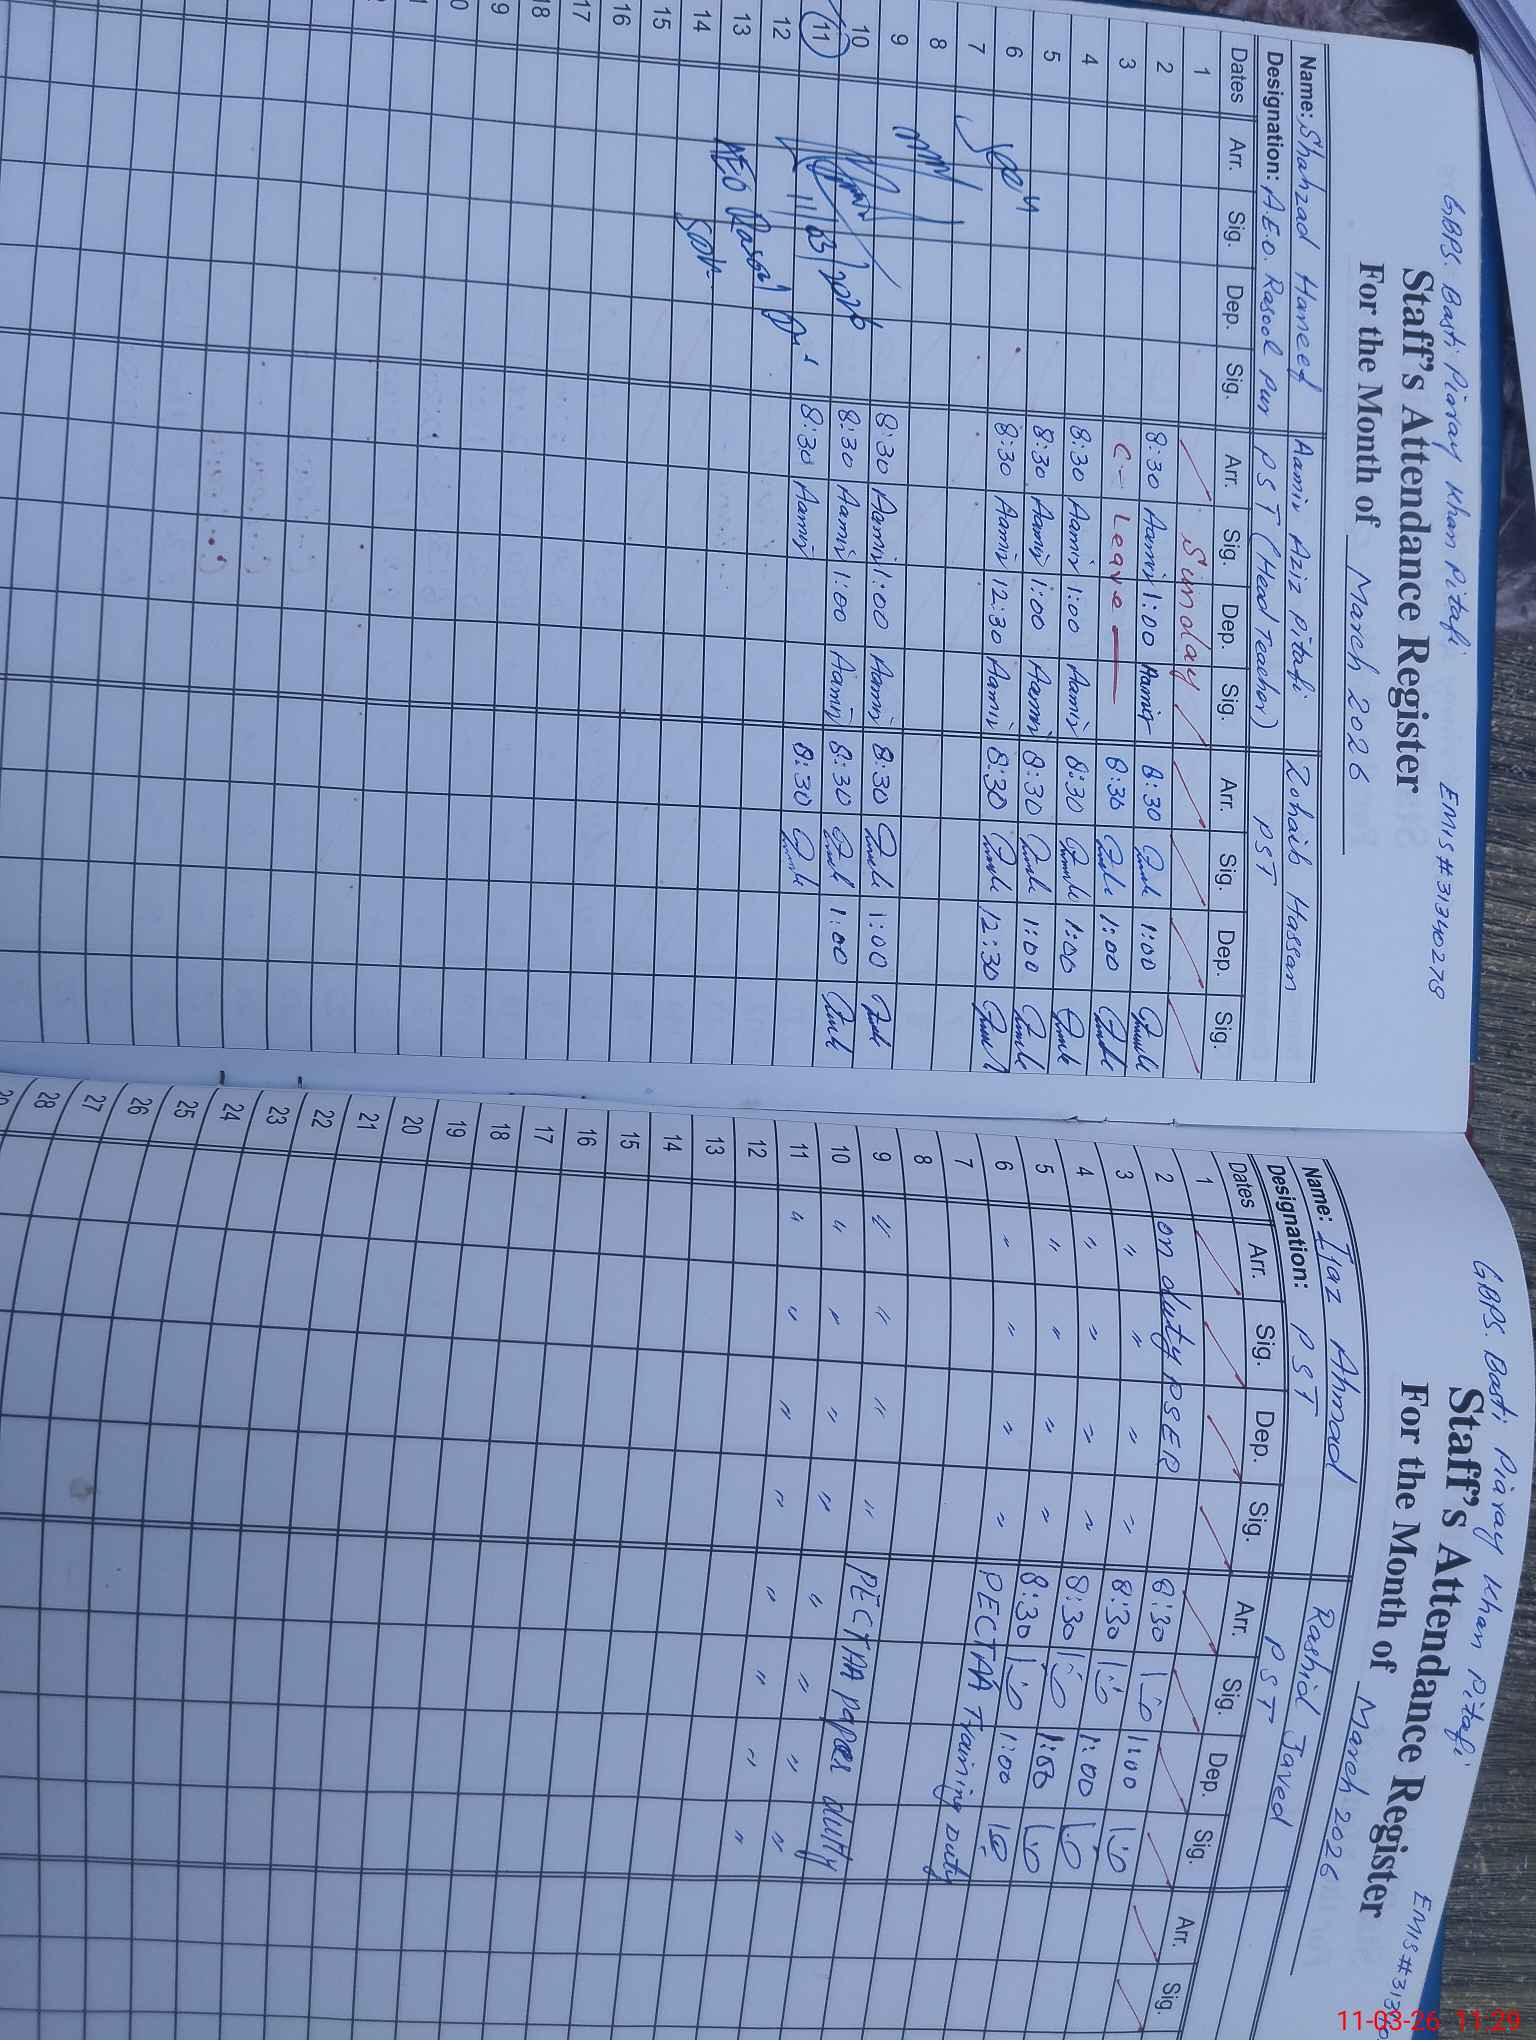 GBPS. Basti Piaray Khan Pitafi EMIS # 31340279
Staff's Attendance Register
For the Month of March 2026
Name: Shahzad Haneef Aamir Aziz Pitafi Zohaib Hassan
Designation: A.E.O. Rasool Pur PST (Head Teacher) PST
Dates Arr. Sig. Dep. Sig. Arr. Sig. Dep. Sig. Arr. Sig. Dep. Sig.
1 Sunday
2 8:30 Aamir 1:00 Aamir 8:30 1:00
3 C- Leave 8:30 1:00
4 8:30 Aamir 1:00 Aamir 8:30 1:00
5 8:30 Aamir 1:00 Aamir 8:30 1:00
6 8:30 Aamir 12:30 Aamir 8:30 12:30
7
8
9 8:30 Aamir 1:00 Aamir 8:30 1:00
10 8:30 Aamir 1:00 Aamir 8:30 1:00
11 8:30 Aamir 8:30
11/03/2026
12
AEO Rasool Pur
13
14
15
16
17
18
19
20
GBPS. Basti Piaray Khan Pitafi EMIS # 313
Staff's Attendance Register
For the Month of March 2026
Name: Ijaz Ahmad Rashid Javed
Designation: PST PST
Dates Arr. Sig. Dep. Sig. Arr. Sig. Dep. Sig. Arr. Sig.
1
2 on duty PSER 8:30 1:00
3 " " " " 8:30 1:00
4 " " " " 8:30 1:00
5 " " " " 8:30 1:00
6 " " " " PECTAA Training Duty
7
8
9 " " " " PECTAA paper duty
10 " " " " " " " "
11 " " " " " " " "
12
13
14
15
16
17
18
19
20
21
22
23
24
25
26
27
28
11-03-26 11:29